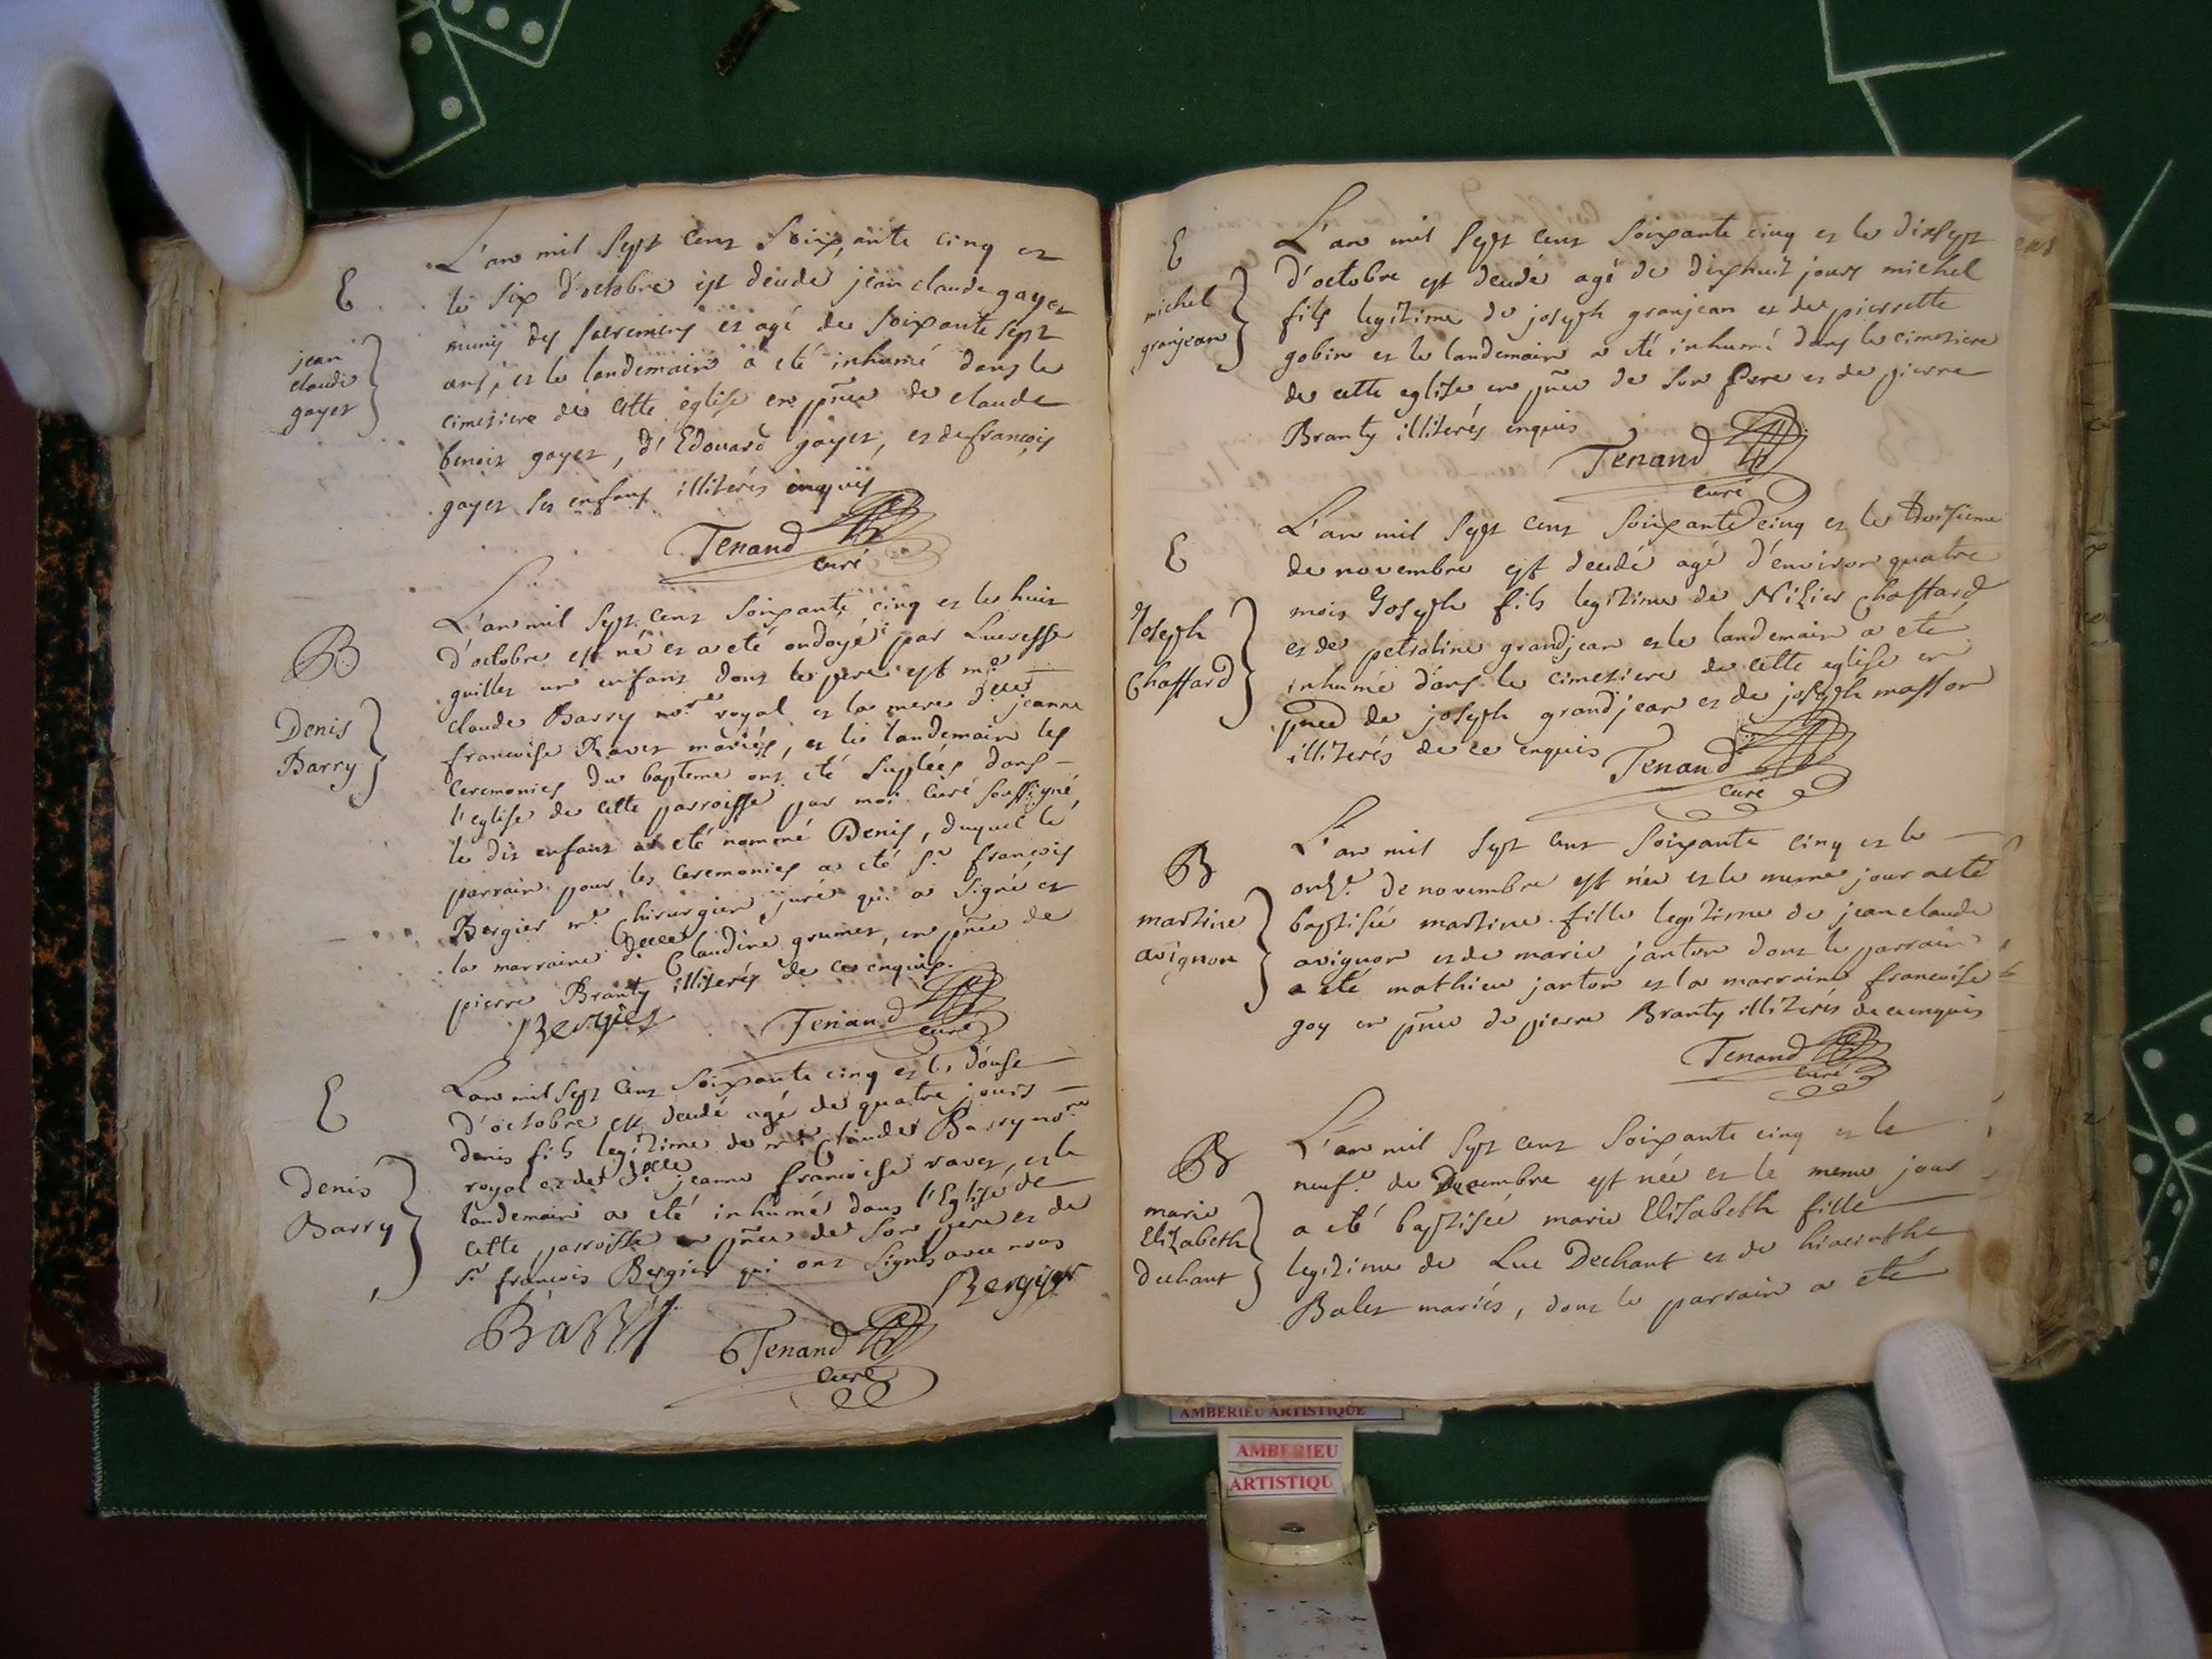 E
jean
claude
gayet
L'an mil sept cent soixante cinq et
le six d'octobre est decedé jean claude gayet
muny des sacremens et agé de soixante sept
ans, et le landemain a eté inhumé dans le
cimetiere de cette eglise en pñce de claude
benoit gayet, d'Edouard gayet, et de françois
gayet ses enfans illiterés enquis
Tenand
curé
B
Denis
Barry
L'an mil sept cent soixante cinq et le huit
d'octobre est né et a eté ondoyé par Lucresse
guillet un enfant dont le pere est me
claude Barry nore royal et la mere dlle jeanne
francoise Ravet mariés, et le landemain les
ceremonies du bapteme ont eté supleés dans
l'eglise de cette parroisse par moi curé soussigné
le dit enfant a eté nommé Denis, duquel le
parrain pour les ceremonies a eté sr françois
Bergier me Chirurgien juré qui a signé et
la marraine dlle Claudine grumet, en pñce de
pierre Branty illiterés de ce enquis.
Bergier
Tenand
curé
E
denis
Barry
L'an mil sept cent soixante cinq et le douse
d'octobre est decedé agé de quatre jours
denis fils legitime de me Claude Barry nore
royal et de dlle jeanne francoise ravet, et le
landemain a eté inhumé dans l'Eglise de
cette parroisse en pñce de son pere et de
sr francois Bergier qui ont signés avec nous
Bergier
Barry
Tenand
curé
E
michel
granjean
L'an mil sept cent soixante cinq et le dixsept
d'octobre est decedé agé de dixhuit jours michel
fils legitime de joseph granjean et de pierrette
gobin et le landemain a eté inhumé dans le cimetiere
de cette eglise en pñce de son pere et de pierre
Branty illiterés enquis
Tenand
curé
E
Joseph
Chaffard
L'an mil sept cent soixante cinq et le troisieme
de novembre est decedé agé d'environ quatre
mois Joseph fils legitime de Nizier Chaffard
et de petroline grandjean et le landemain a eté
inhumé dans le cimetiere de cette eglise en
pñce de joseph grandjean et de joseph masson
illiterés de ce enquis
Tenand
curé
B
martine
avignon
L'an mil sept cent soixante cinq et le
onze de novembre est née et le meme jour a eté
baptisée martine fille legitime de jean claude
avignon et de marie janton dont le parrain
a eté mathieu janton et la marraine francoise
goy en pñce de pierre Branty illiterés de ce enquis
Tenand
curé
B
marie
Elizabeth
dechant
L'an mil sept cent soixante cinq et le
neufe de Decembre est née et le meme jour
a eté baptisée marie Elisabeth fille
legitime de Luc Dechant et de hiacinthe
Balet mariés, dont le parrain a eté
AMBERIEU ARTISTIQUE
AMBERIEU
ARTISTIQU